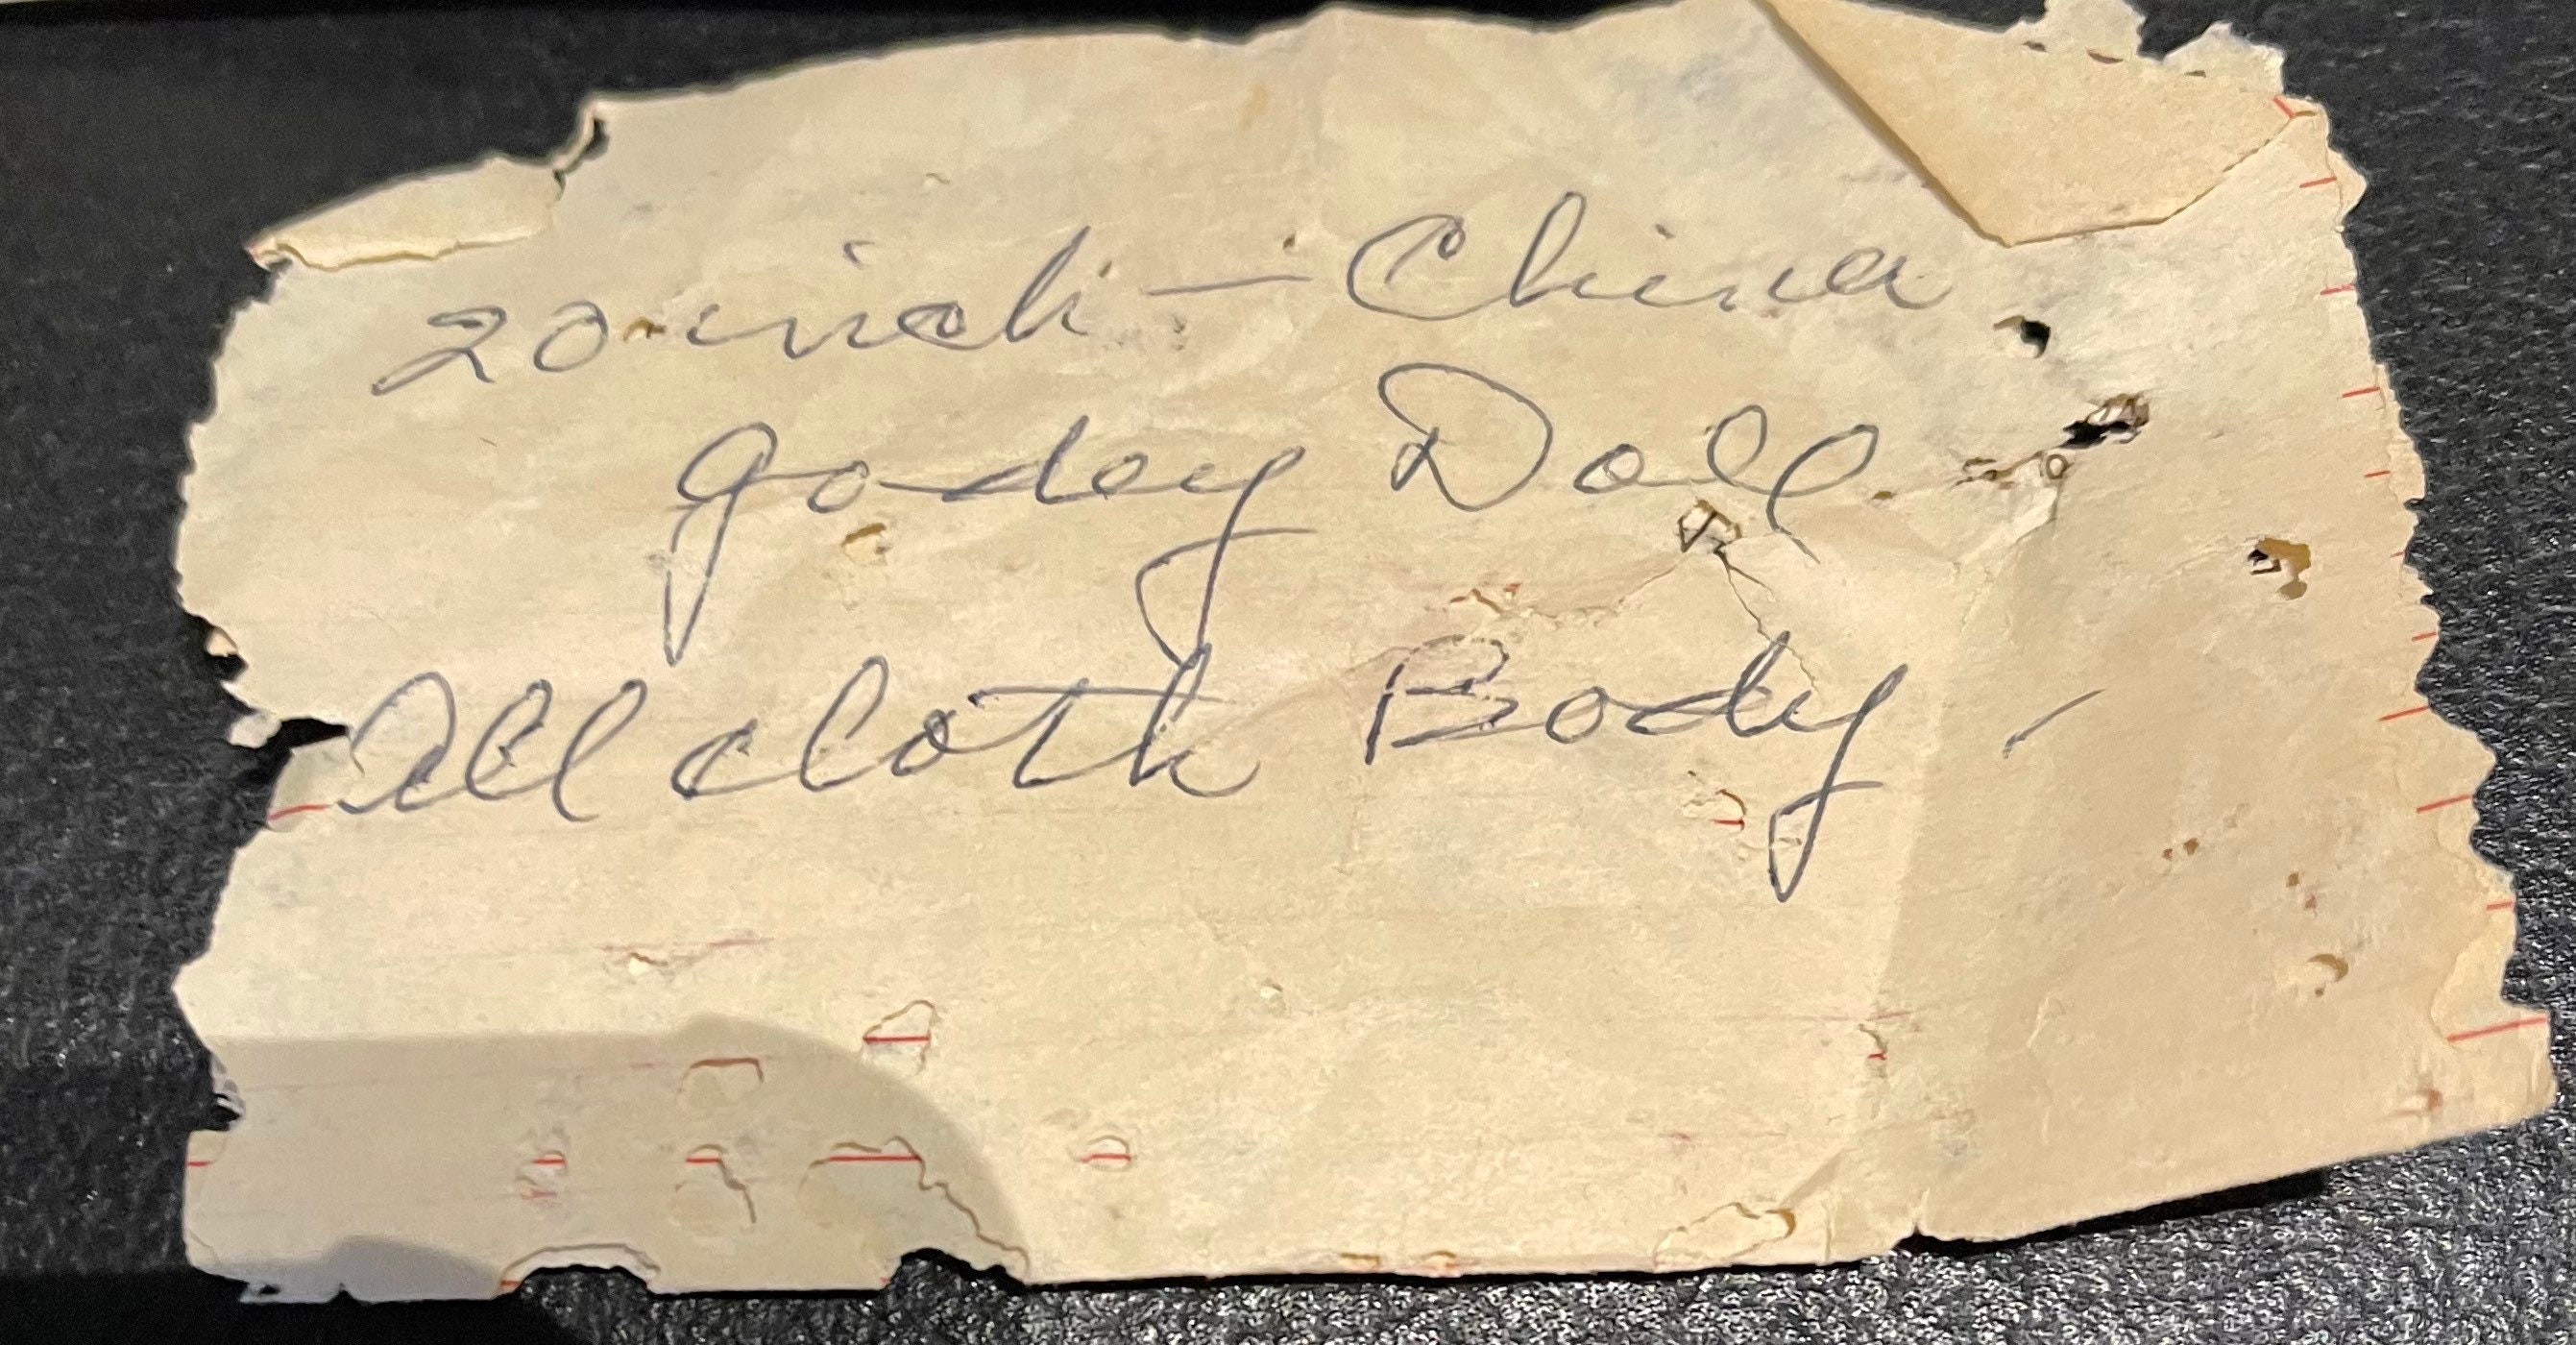 20 inch - China
Godey Doll
All cloth Body -